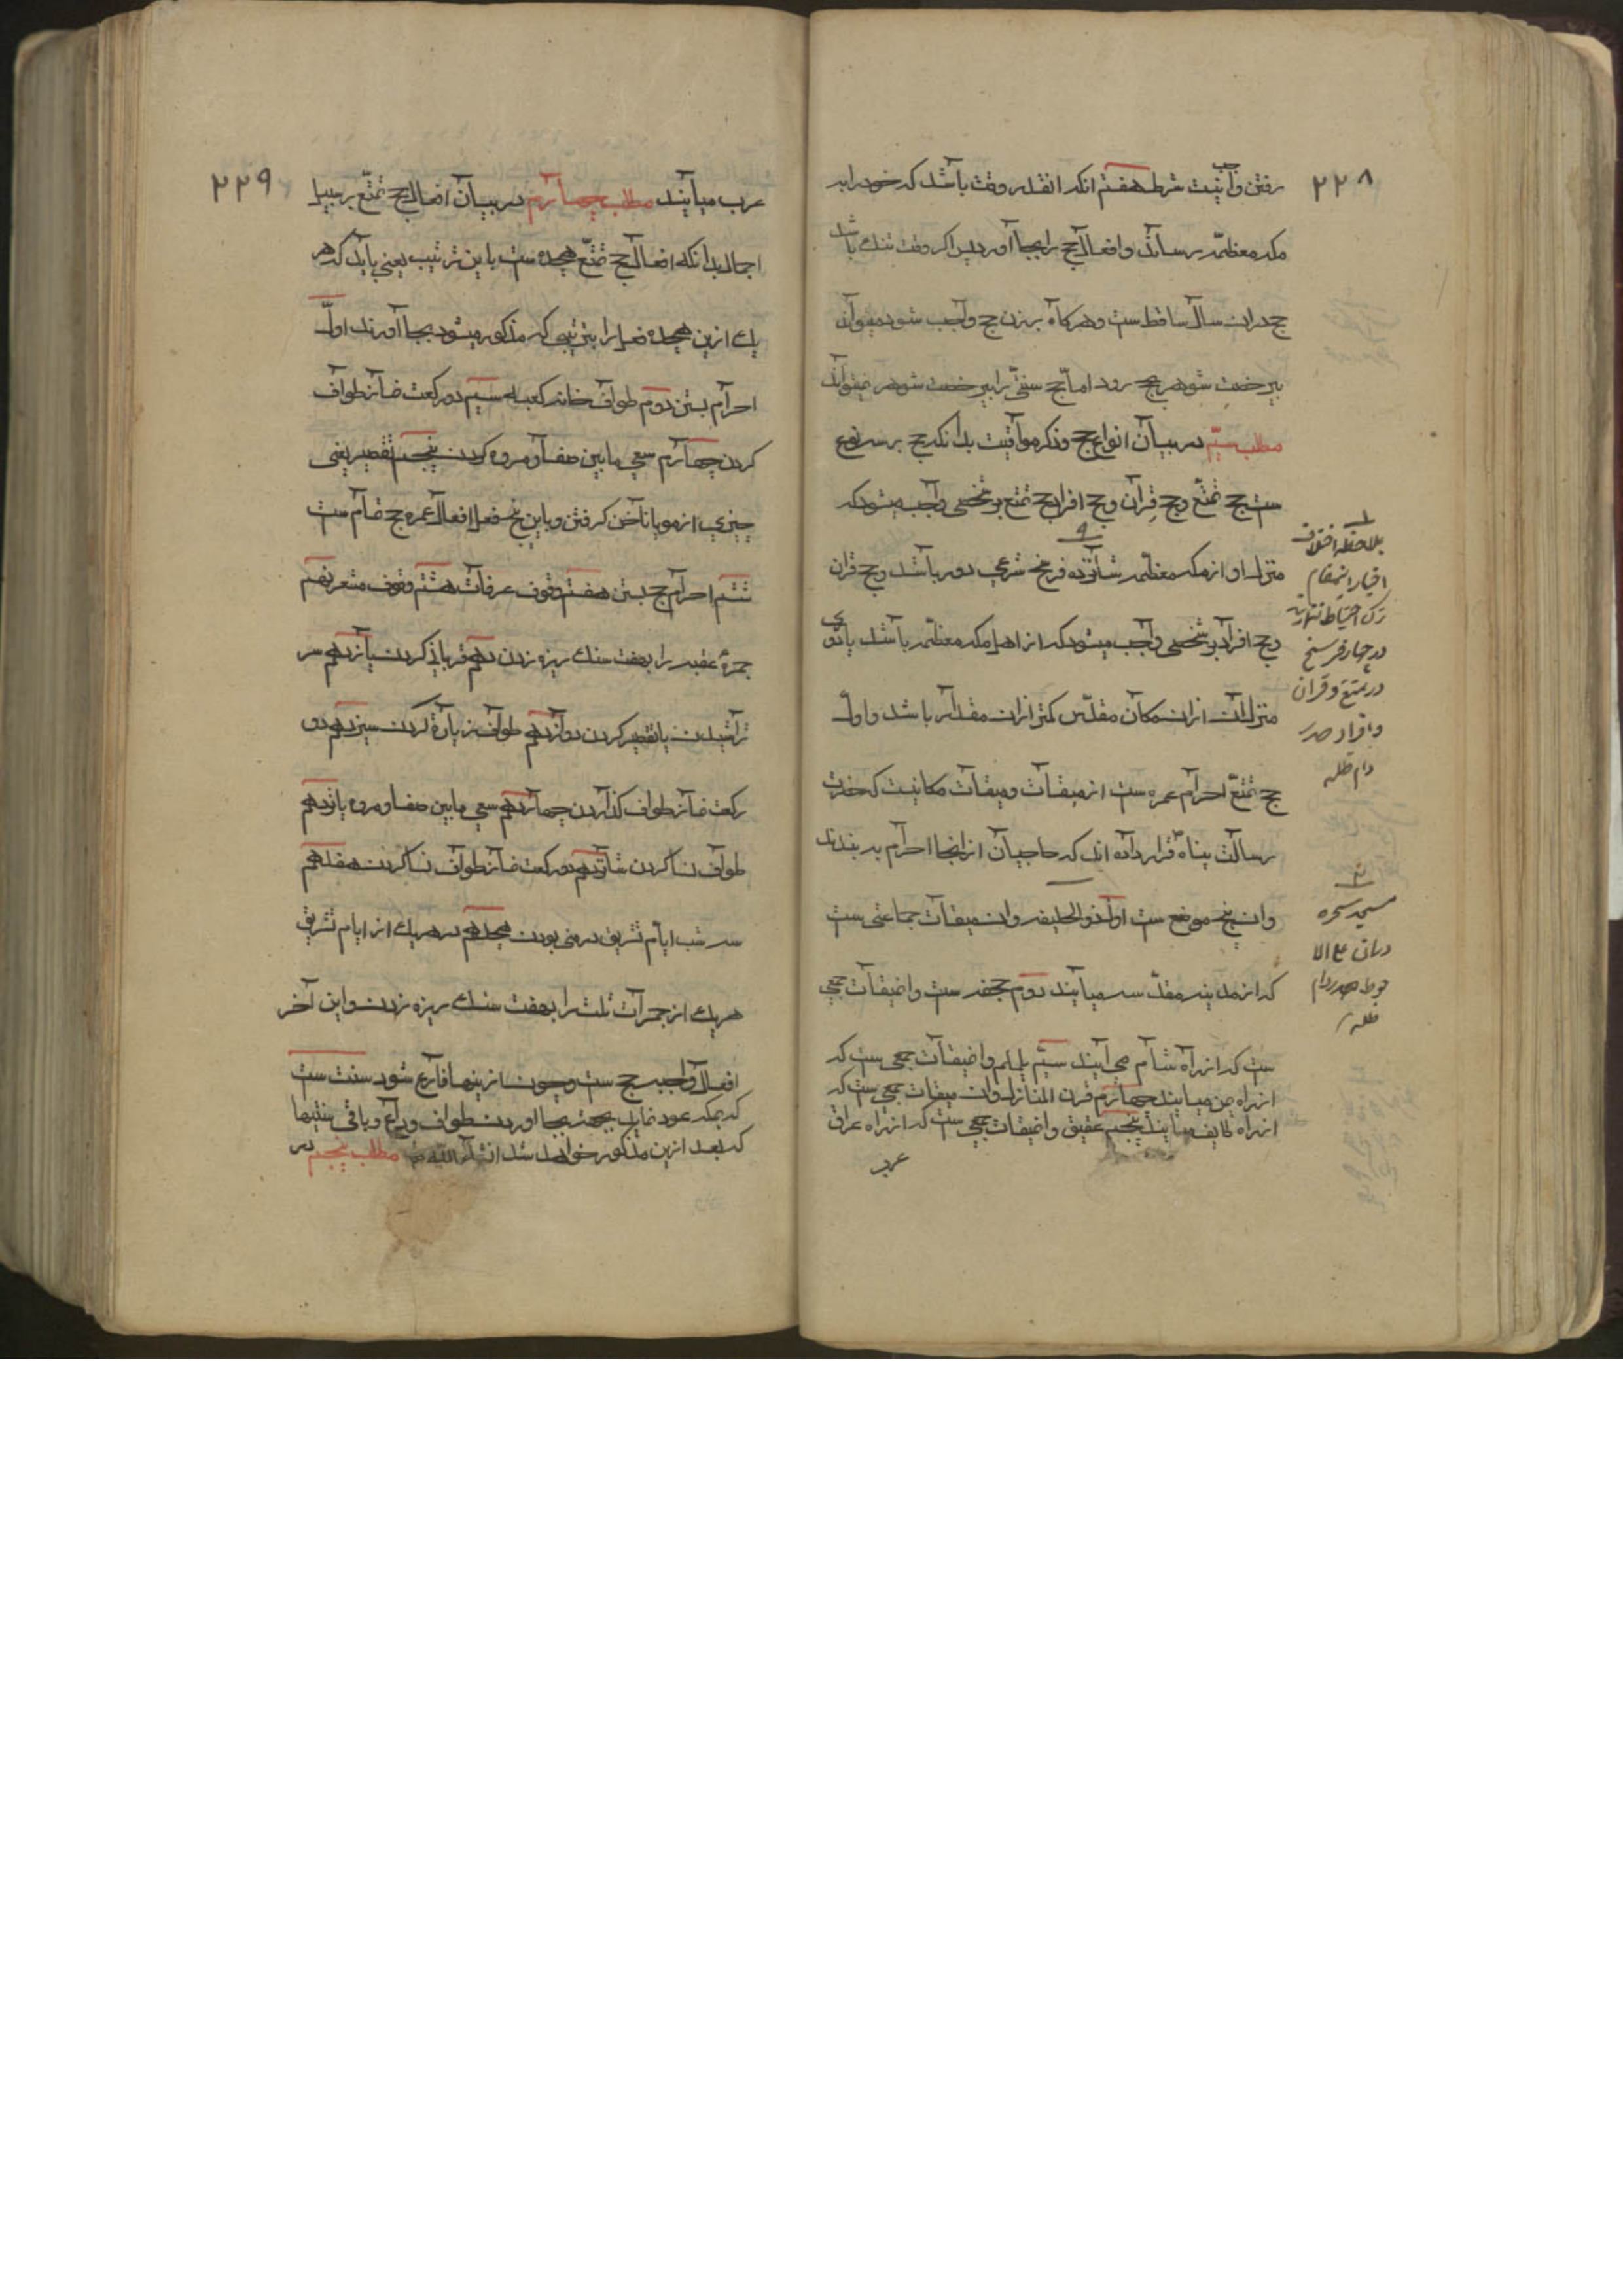 ۲۲۸
رفتن واجبست شرط هفتم انکه انقدر وقت باشد که خود را به
مکه معظمه رساند و افعال حج را بجا آورد پس اکر وقت تنک باشد
حج در ان سال ساقط ست و هرکاه بر زن حج واجب شود میتواند
بیرخصت شوهر بحج رود اما حج سنتی را بیرخصت شوهر نمیتواند
مطلب سیّم در بیان انواع حج و ذکر مواقیت بدانکه حج بر سه نوع
ست حج تمتّع و حج قِران و حج افراد حج تمتع بر شخصی واجب میشود که
منزل او از مکه معظمه شانزده فرسخ شرعی دور باشد و حج قران
و حج افراد بر شخصی واجب میشود که از اهل مکه معظمه باشد یا دوری
منزل ان از ان مکان مقدّس کمتر از ان مقدار باشد و اول
حج تمتّع احرام عمره ست از میقات و میقات مکانیست که حضرت
رسالت پناه قرار داده اند که حاجیان از انجا احرام بر بندند
وان پنج موضع ست اول ذو الحلیفه وان میقات جماعتی ست
که از مدینه مقدّسه میایند دوم جحفه ست وان میقات جمعی
ست که از راه شام می آیند سیّم یلملم وان میقات جمعی ست که
از راه یمن میایند چهارم قرن المنازل وان میقات جمعی ست که
از راه طایف میایند پنجم عقیق وان میقات جمعی ست که از راه عراق
عرب
بملاحظه اختلاف
اخبار در این مقام
ترک احتیاط نشود
در چهار فرسخ
در تمتع و قران
و افراد صدر
دام ظله
مسجد شجره
صدر دام
ظله
۲۲۹
عرب میایند مطلب چهارم در بیان افعال حج تمتّع بر سبیل
اجمال بدانکه افعال حج تمتّع هیجده ست باین ترتیب یعنی باید که هر
یک ازین هیجده فعل را بترتیبی که مذکور میشود بجا آورند اول
احرام بستن دوم طواف خانه کعبه سیم دو رکعت نماز طواف
کردن چهارم سعی مابین صفا و مروه کردن پنجم تقصیر یعنی
چیزی از مو یا ناخن کرفتن و باین پنج فعل افعال عمره حج تمام ست
ششم احرام حج بستن هفتم وقوف عرفات هشتم وقوف مشعر نهم
جمرهٔ عقبه را بهفت سنک ریزه زدن دهم قربانی کردن یازدهم سر
تراشیدن یا تقصیر کردن دوازدهم طواف زیارة کردن سیزدهم دو
رکعت نماز طواف کذاردن چهاردهم سعی مابین صفا و مروه پانزدهم
طواف نسا کردن شانزدهم دو رکعت نماز طواف نسا کردن هفدهم
سه شب ایام تشریق در منی بودن هیجدهم در هریک از ایام تشریق
هریک از جمرات ثلث را بهفت سنک ریزه زدن و این آخر
افعال واجبه حج ست و چون از ینها فارغ شود سنت ست
که بمکه عود نماید بجهت بجا اوردن طواف وداع و باقی سنتیها
که بعد ازین مذکور خواهد شد انشاء الله مطلب پنجم در